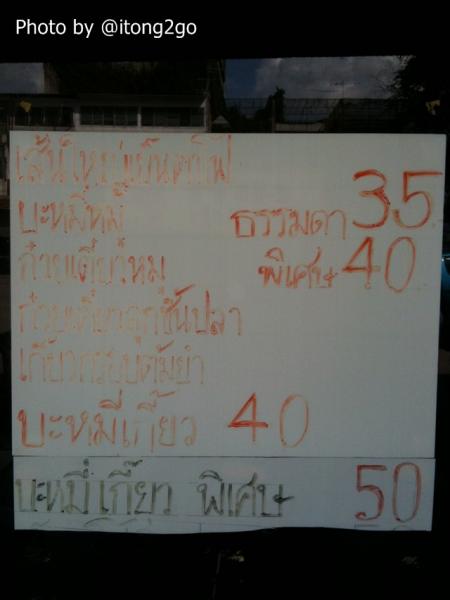 Photo by @itong2go
เส้นใหญ่เย็นตาโฟ
บะหมี่หมี่ ธรรมดา 35
ก๋วยเตี๋ยวหมู พิเศษ 40
ก๋วยเตี๋ยวลูกชิ้นปลา
เกี๊ยวกรอบต้มยำ
บะหมี่เกี๊ยว 40
บะหมี่เกี๊ยว พิเศษ 50